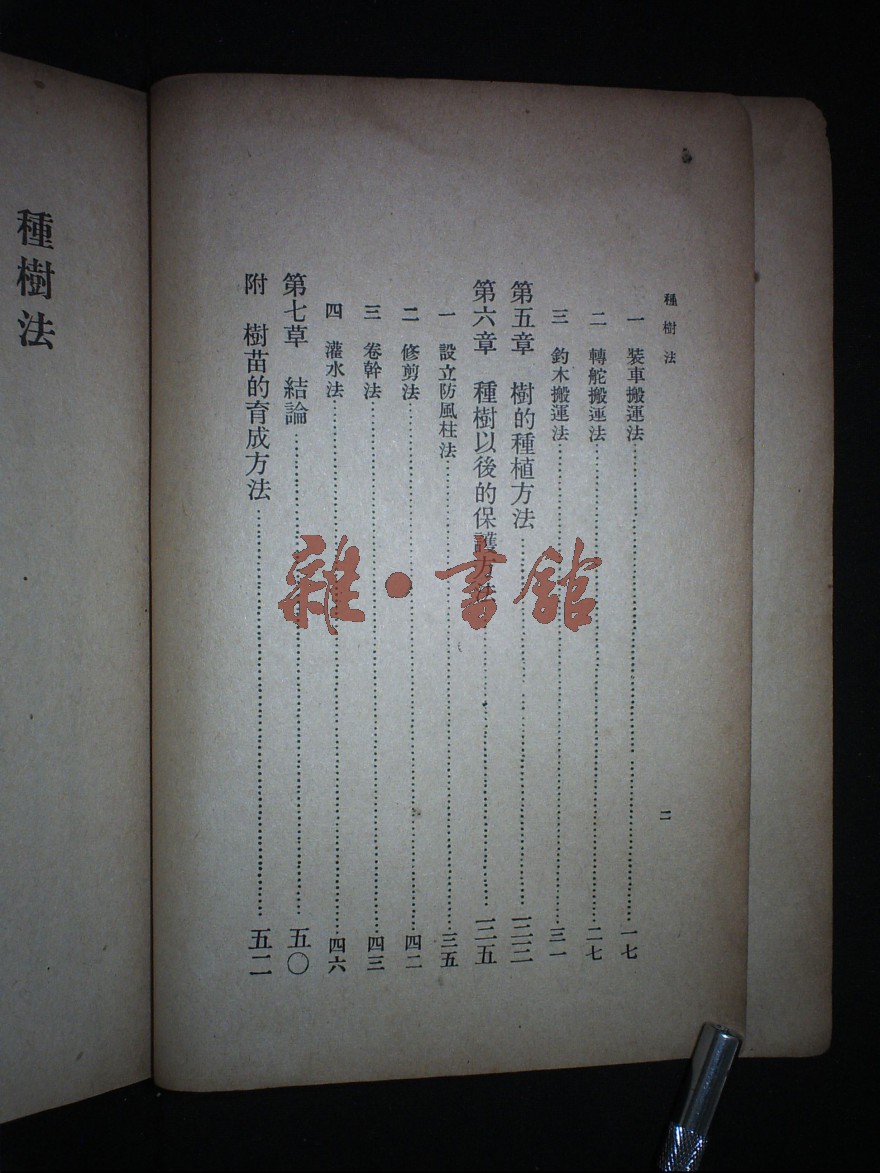 種樹法
二
一 裝車搬運法 一七
二 轉舵搬運法 二七
三 釣木搬運法 三一
第五章 樹的種植方法 三三
第六章 種樹以後的保護方法 三五
一 設立防風柱法 三五
二 修剪法 四二
三 卷幹法 四三
四 灌水法 四六
第七草 結論 五〇
附 樹苗的育成方法 五二
種樹法
雜·書館